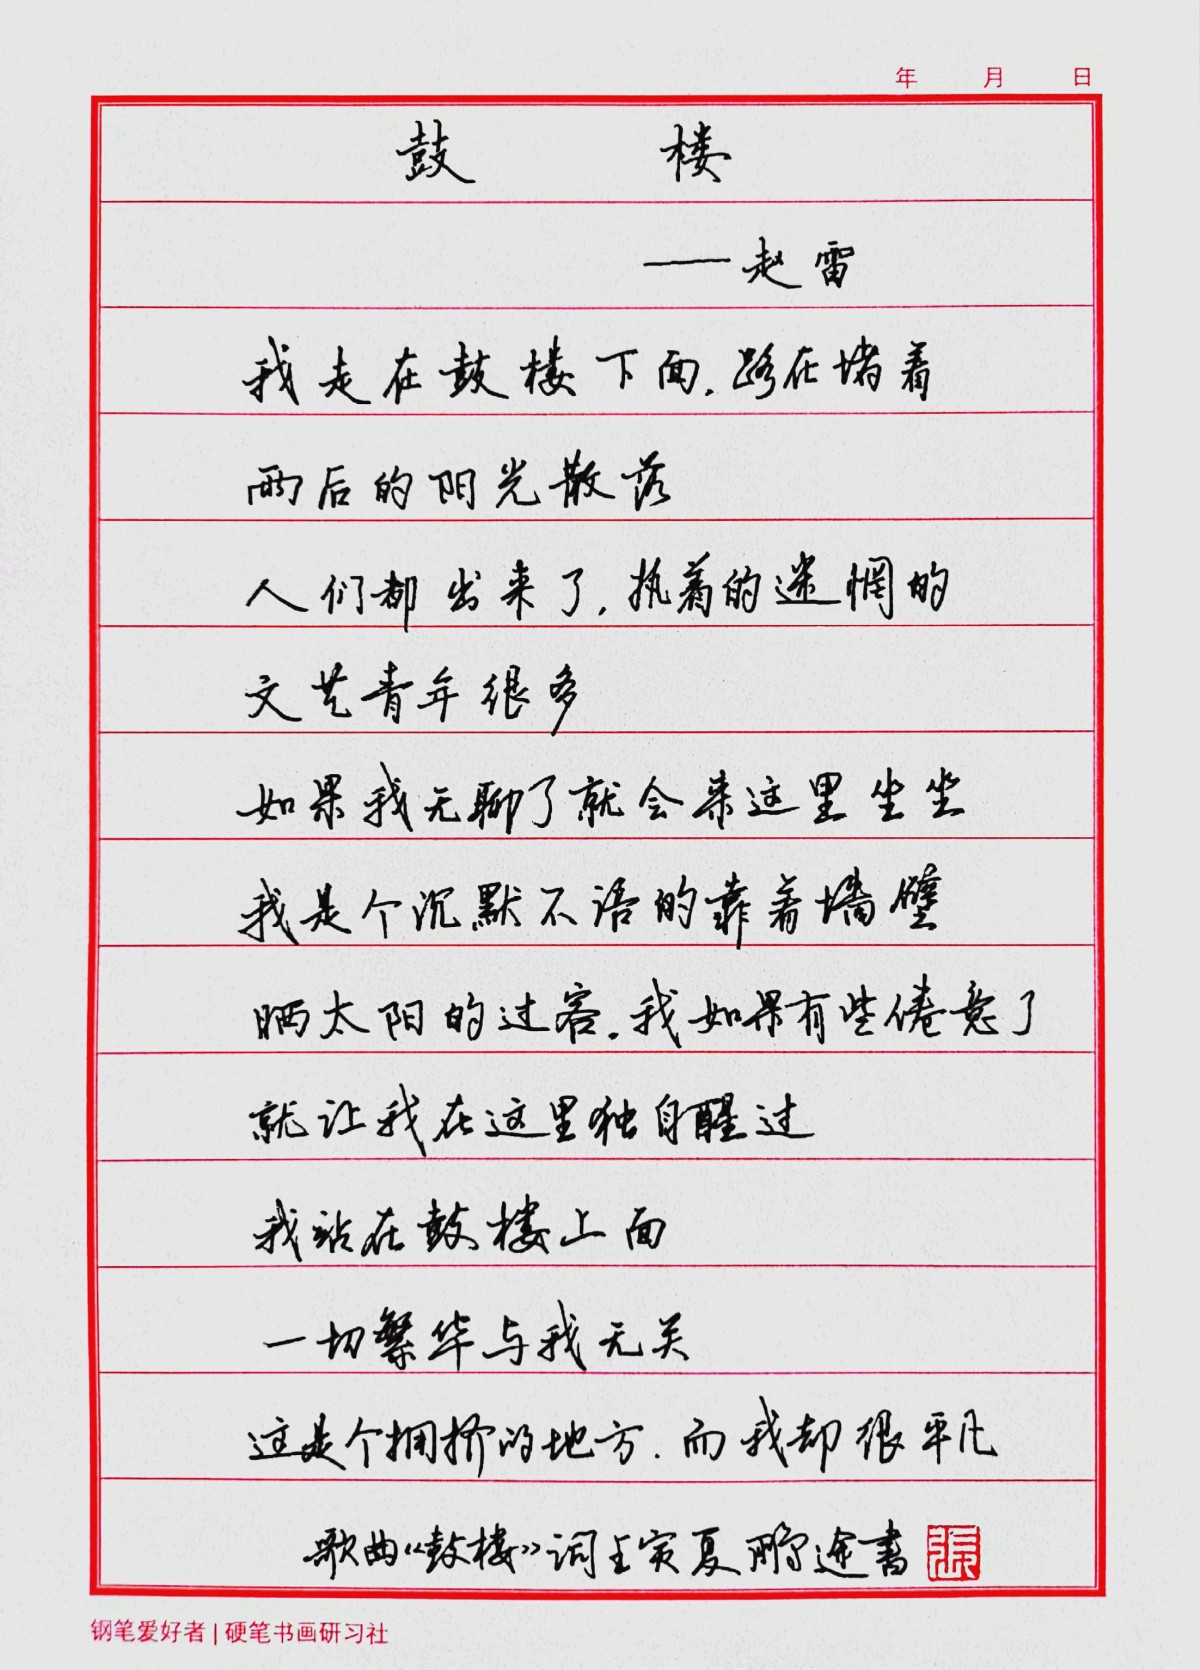 年 月 日
鼓 楼
——赵雷
我走在鼓楼下面,路在堵着
雨后的阳光散落
人们都出来了,执着的迷惘的
文艺青年很多
如果我无聊了就会来这里坐坐
我是个沉默不语的靠着墙壁
晒太阳的过客,我如果有些倦意了
就让我在这里独自醒过
我站在鼓楼上面
一切繁华与我无关
这是个拥挤的地方,而我却很平凡
歌曲《鼓楼》词壬寅夏鹏途书
钢笔爱好者 | 硬笔书画研习社